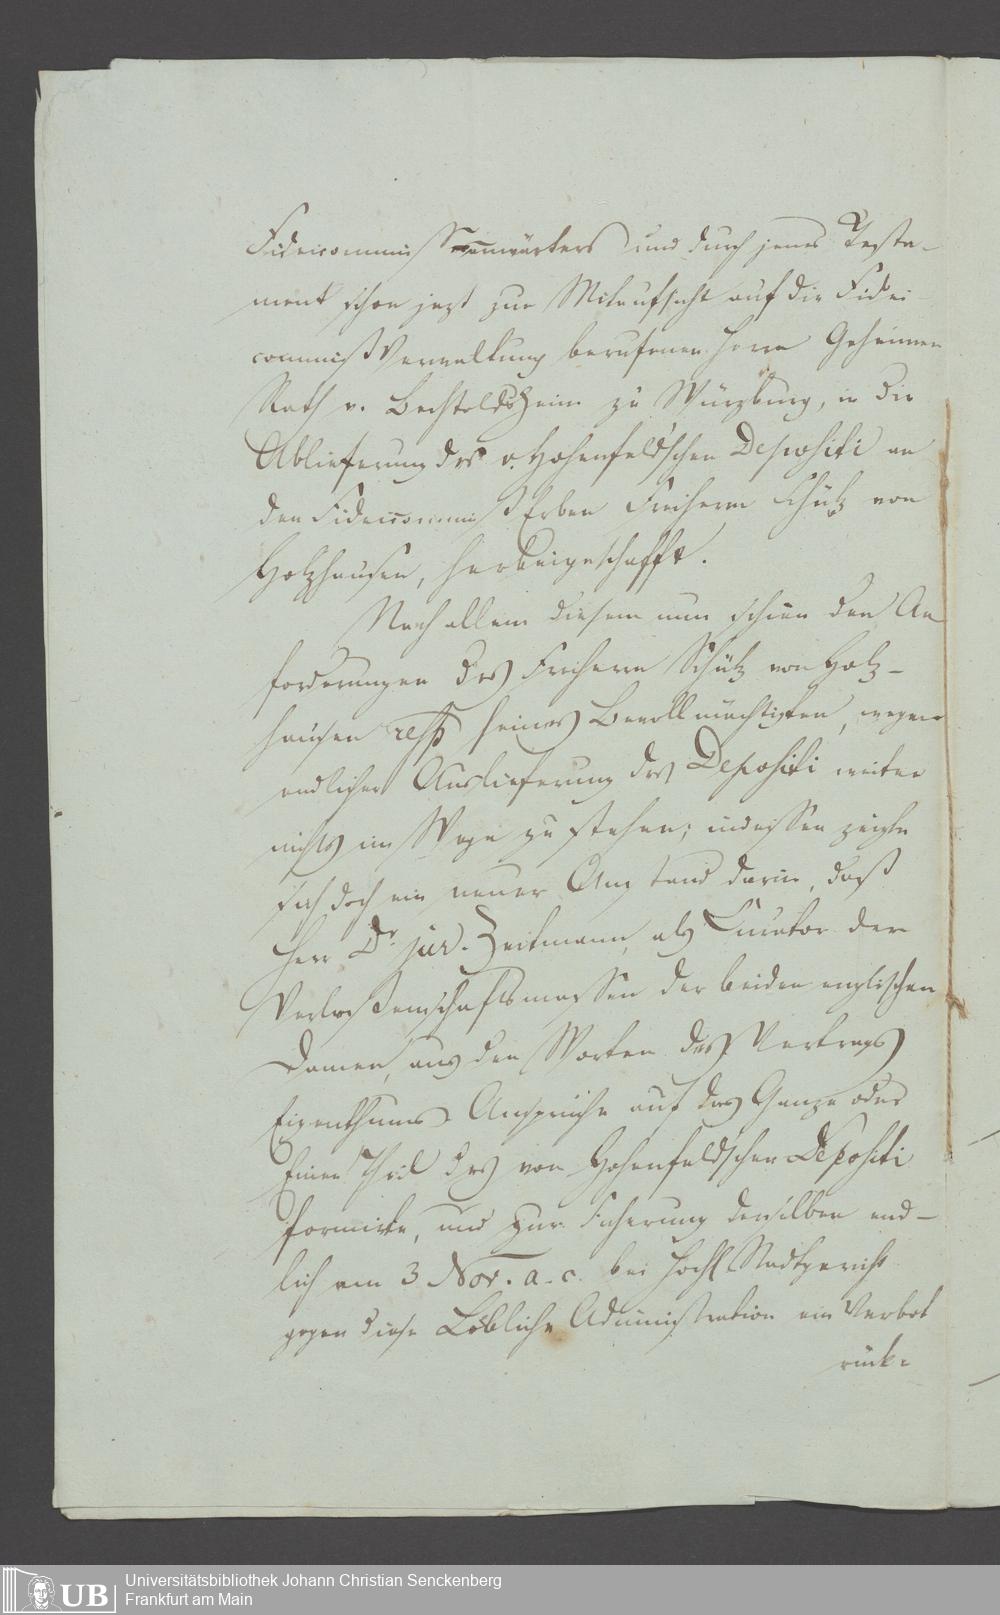 Fideicommiß Anwärters und durch jenes Testa-
ment schon jezt zur Mitaufsicht auf die Fidei
commiß Verwaltung berufenen Herrn Geheimen
Rath v. Bechtoldsheim zu Würzburg, in die
Ablieferung des v. Hohenfeld'schen Depositi an
den Fideicommiß Erben Freiherrn Schütz von
Holzhausen, herbeigeschafft.
Nach allem diesem nun schien den An
forderungen des Freiherrn Schütz von Holz-
hausen resp seines Bevollmächtigten, wegen
endlicher Auslieferung des Depositi weiter
nichts im Wege zu stehen; indessen zeigte
sich doch ein neuer Anstand darin, daß
Herr Dr. jur. Zeitmann, als Curator der
Verlassenschaftsmassen der beiden englischen
Damen, aus den Worten des Vertrags
Eigenthums Ansprüche auf das Ganze oder
Einen Theil des von Hohenfeld'schen Depositi
formirte, und zur Sicherung derselben end-
lich am 3 Nov. a. c. bei Hochl. Stadtgericht
gegen diese Löbliche Administration ein Verbot
rück-
Universitätsbibliothek Johann Christian Senckenberg
Frankfurt am Main
UB